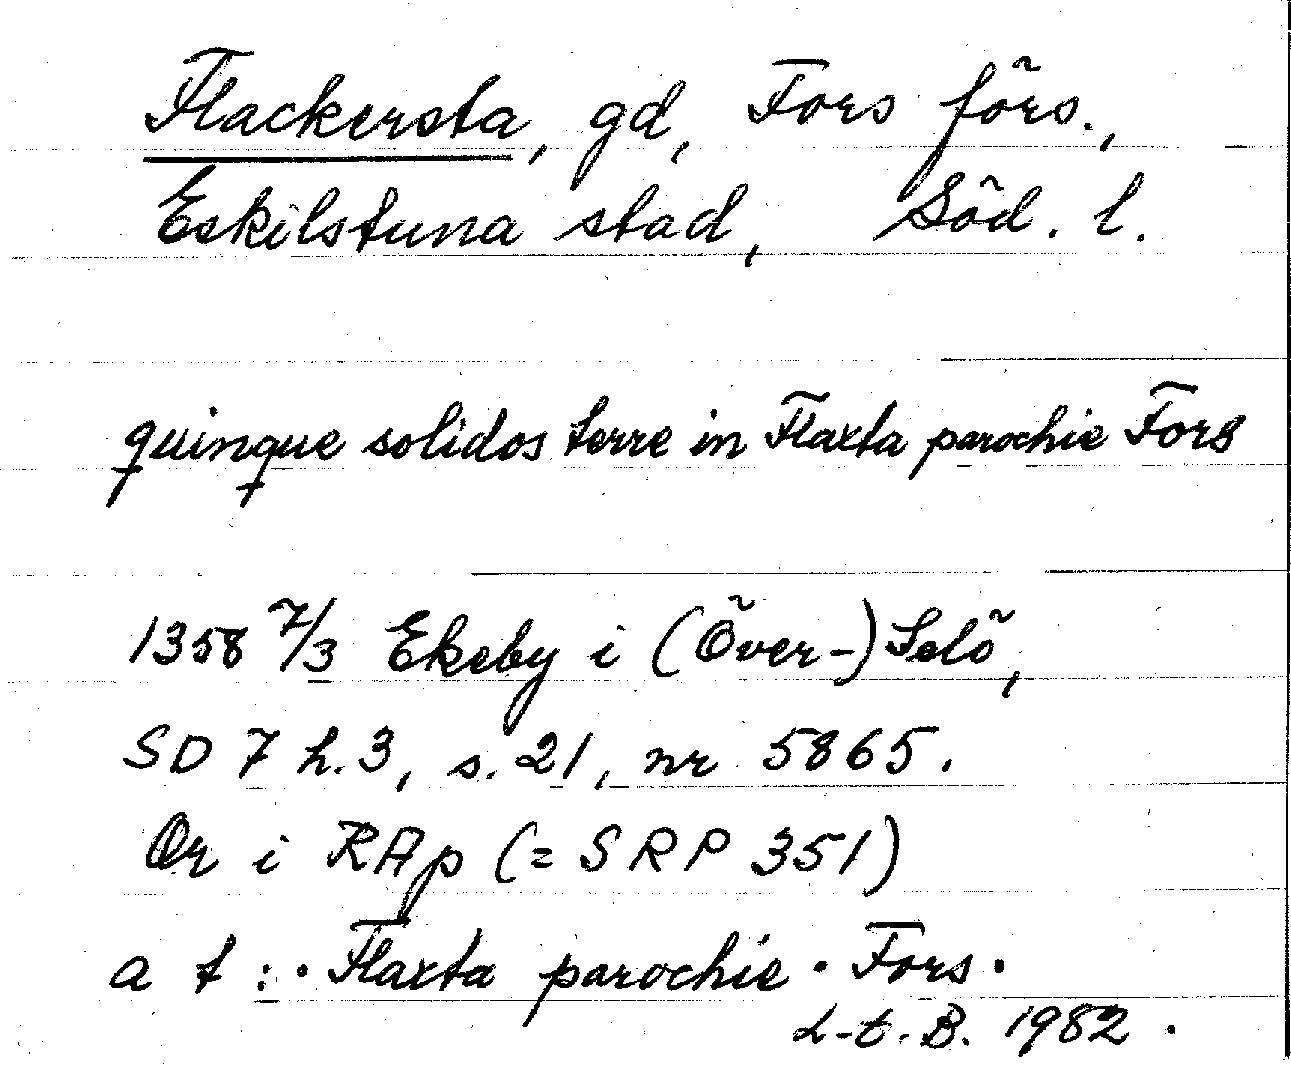 Flackersta, gd, Fors förs.,
Eskilstuna stad, Söd. l.
quinque solidos terre in Flaxta parochie Fors
1358 7/3 Ekeby i (Över-) Selö,
SD 7 h. 3, s. 21, nr 5865.
Or i RAp (= SRP 351)
a t : · Flaxta parochie · Fors ·
L-t. B. 1982 .